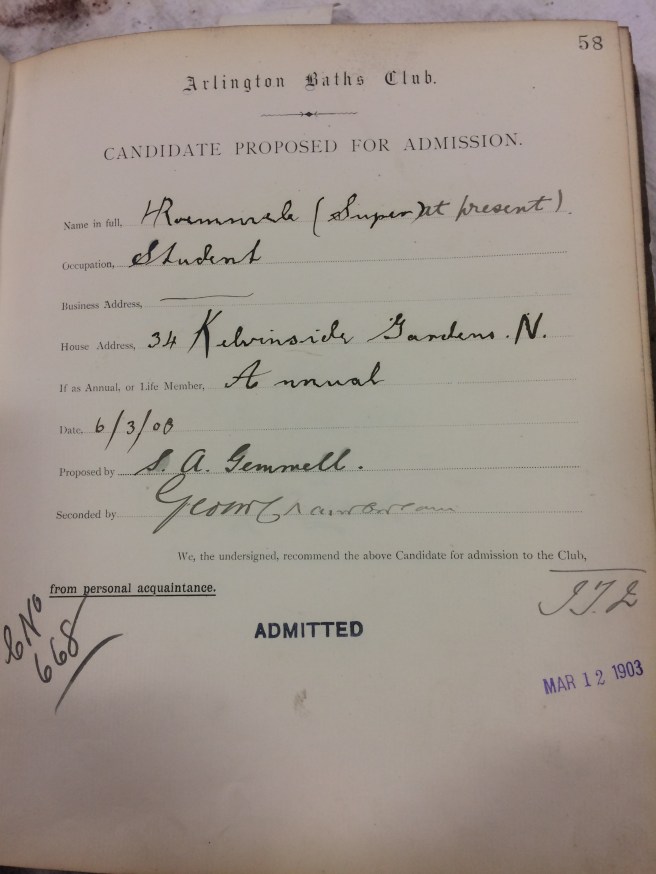 58
Arlington Baths Club.
CANDIDATE PROPOSED FOR ADMISSION.
Name in full, (Super) at present).
Occupation, Student
Business Address,
House Address, 34 Kelvinside Gardens. N.
If as Annual, or Life Member, Annual
Date, 6/3/03
Proposed by S. A. Gemmell.
Seconded by
We, the undersigned, recommend the above Candidate for admission to the Club,
from personal acquaintance.
668
ADMITTED
MAR 12 1903